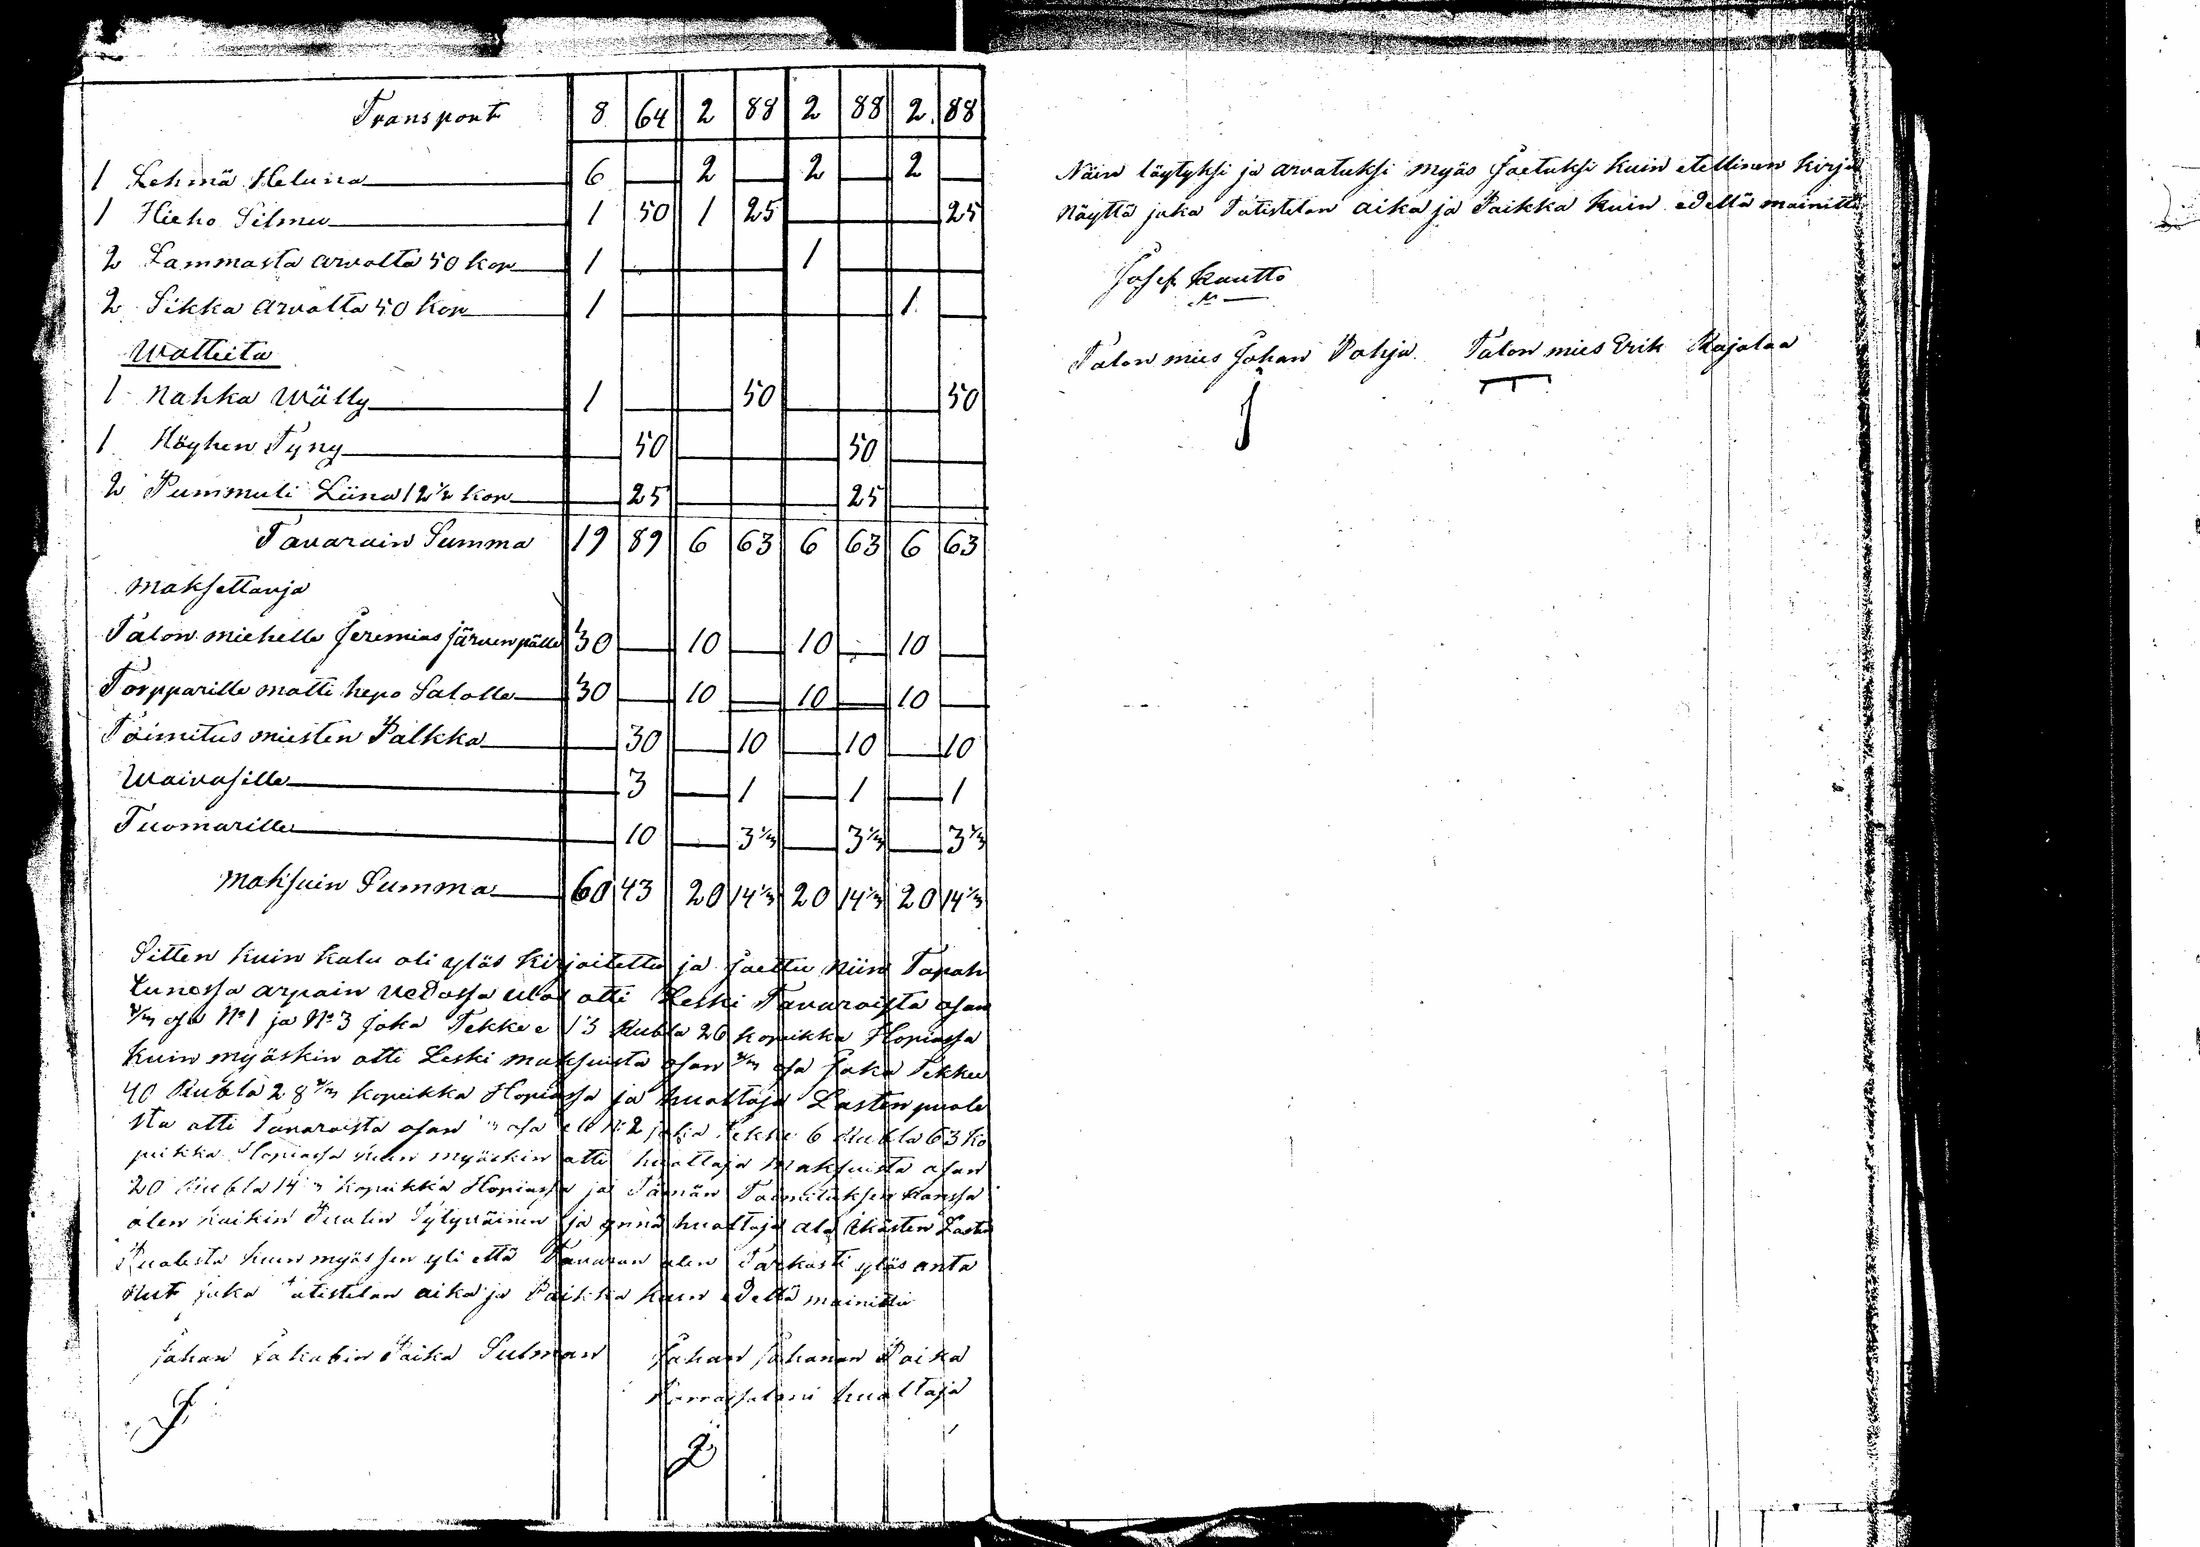 Transport 8 64 2 88 2 88 2 88
1 Lehmä Heluna 6 — 2 — 2 — 2 —
1 Hieho Silmu 1 50 1 25 — — — 25
2 Lammasta arvolta 50 kop 1 — — — 1 — — —
2 Sikka arvolta 50 kop 1 — — — — — 1 —
Watteita
1 Nahka Wälly 1 — — 50 — — — 50
1 Höyhen Tyny — 50 — — — 50 — —
2 Pummuli Liina 12½ kop — 25 — — — 25 — —
Tavarain Summa 19 89 6 63 6 63 6 63
Maksettavja
Talon miehelle Jeremias Järvenpälle 30 — 10 — 10 — 10 —
Torpparille Matti hepo Salolle 30 — 10 — 10 — 10 —
Toimitus miesten Palkka — 30 — 10 — 10 — 10
Waivasille — 3 — 1 — 1 — 1
Tuomarille — 10 — 3⅓ — 3⅓ — 3⅓
Maksuin Summa 60 43 20 14⅓ 20 14⅓ 20 14⅓
Sitten kuin kalu oli ylös kirjoitettu ja Jaettu niin Tapah
tunessa arpain vedossa ulos otti Leski Tavaroista osan
⅔ osa No 1 ja No 3 Joka Tekkee 13 Rubla 26 kopeikka Hopiassa
kuin myöskin otti Leski maksuista osan ⅔ osa Joka Tekkee
40 Rubla 28⅔ kopeikka Hopiassa ja huoltaja Lasten puole
sta otti Tavaroista osan ⅓ osa No 2 joka Tekke 6 Rubla 63 ko
peikka Hopiassa kuin myöskin otti huoltaja maksuista osan
20 Rubla 14⅓ kopeikka Hopiassa ja Tämän Toimituksen kanssa
olen kaikin Puolin Tytyväinen ja ynnä huoltaja ala ikästen Laste
Puolesta kuin myös sen yli että Tavaran olen Tarkasti ylös anta
nut juka Totistetan aika ja Paikka kuin edellä mainittu
Johan Jakobin Poika Sulman Johan Johanan Poika
huoltaja
J
Näin löytyksi ja arvatuksi myös Jaetuksi kuin etellinen kirja
Näyttä juka Totistetan aika ja Paikka kuin edellä mainittu
Josef Kautto
Talon mies Johan Pohja Talon mies Erik Rajalaa